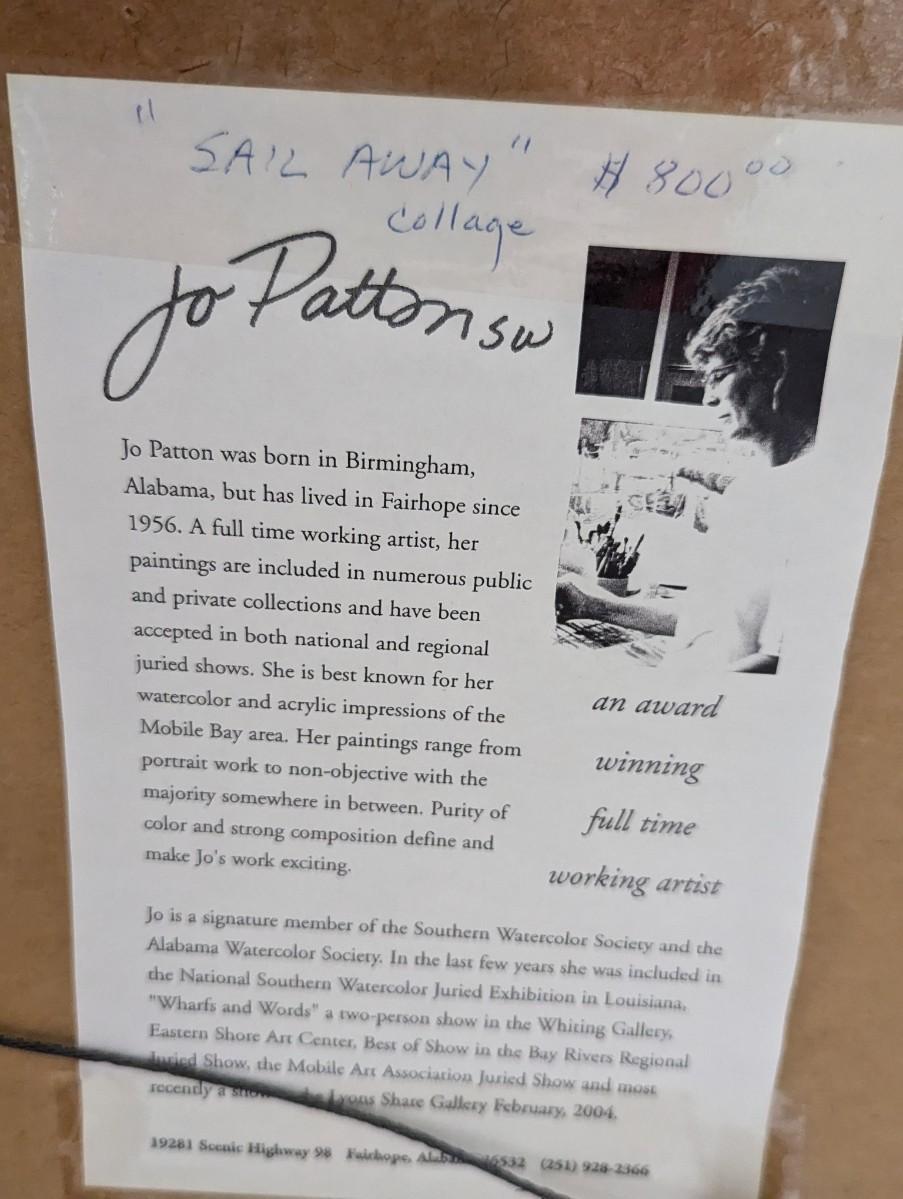 " SAIL AWAY " $ 800 00
collage
Jo Patton sw
Jo Patton was born in Birmingham,
Alabama, but has lived in Fairhope since
1956. A full time working artist, her
paintings are included in numerous public
and private collections and have been
accepted in both national and regional
juried shows. She is best known for her
watercolor and acrylic impressions of the
Mobile Bay area. Her paintings range from
portrait work to non-objective with the
majority somewhere in between. Purity of
color and strong composition define and
make Jo's work exciting.
an award
winning
full time
working artist
Jo is a signature member of the Southern Watercolor Society and the
Alabama Watercolor Society. In the last few years she was included in
the National Southern Watercolor Juried Exhibition in Louisiana,
"Wharfs and Words" a two-person show in the Whiting Gallery,
Eastern Shore Art Center, Best of Show in the Bay Rivers Regional
Juried Show, the Mobile Art Association Juried Show and most
recently a Lyons Share Gallery February, 2004.
19281 Scenic Highway 98 Fairhope, (251) 928-2366